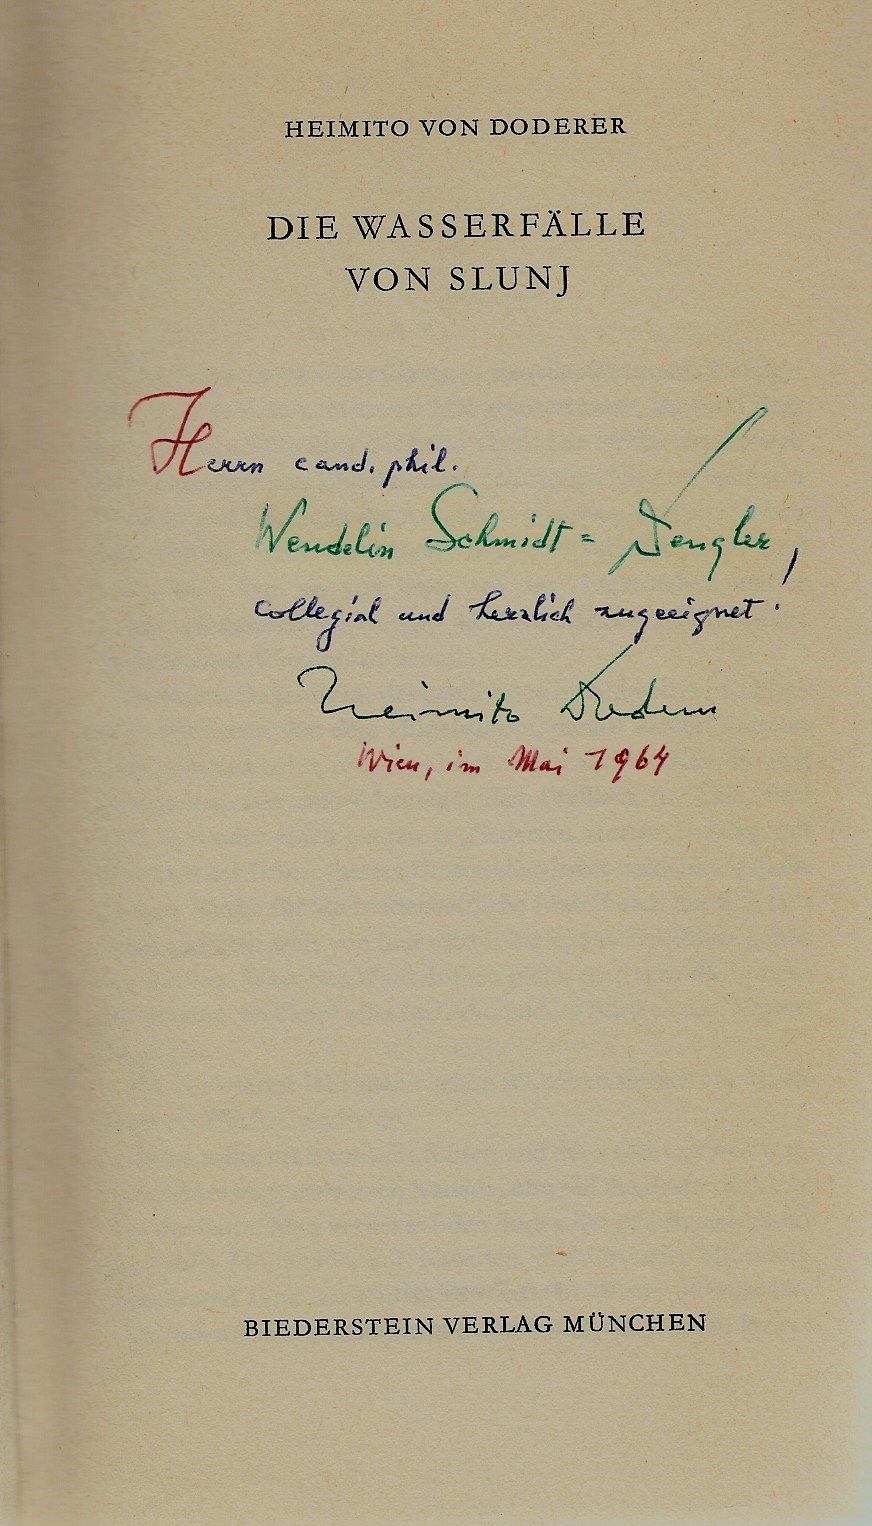 HEIMITO VON DODERER
DIE WASSERFÄLLE
VON SLUNJ
Herrn cand. phil.
Wendelin Schmidt = Dengler,
collegial und herzlich zugeeignet!
Heimito Doderer
Wien, im Mai 1964
BIEDERSTEIN VERLAG MÜNCHEN